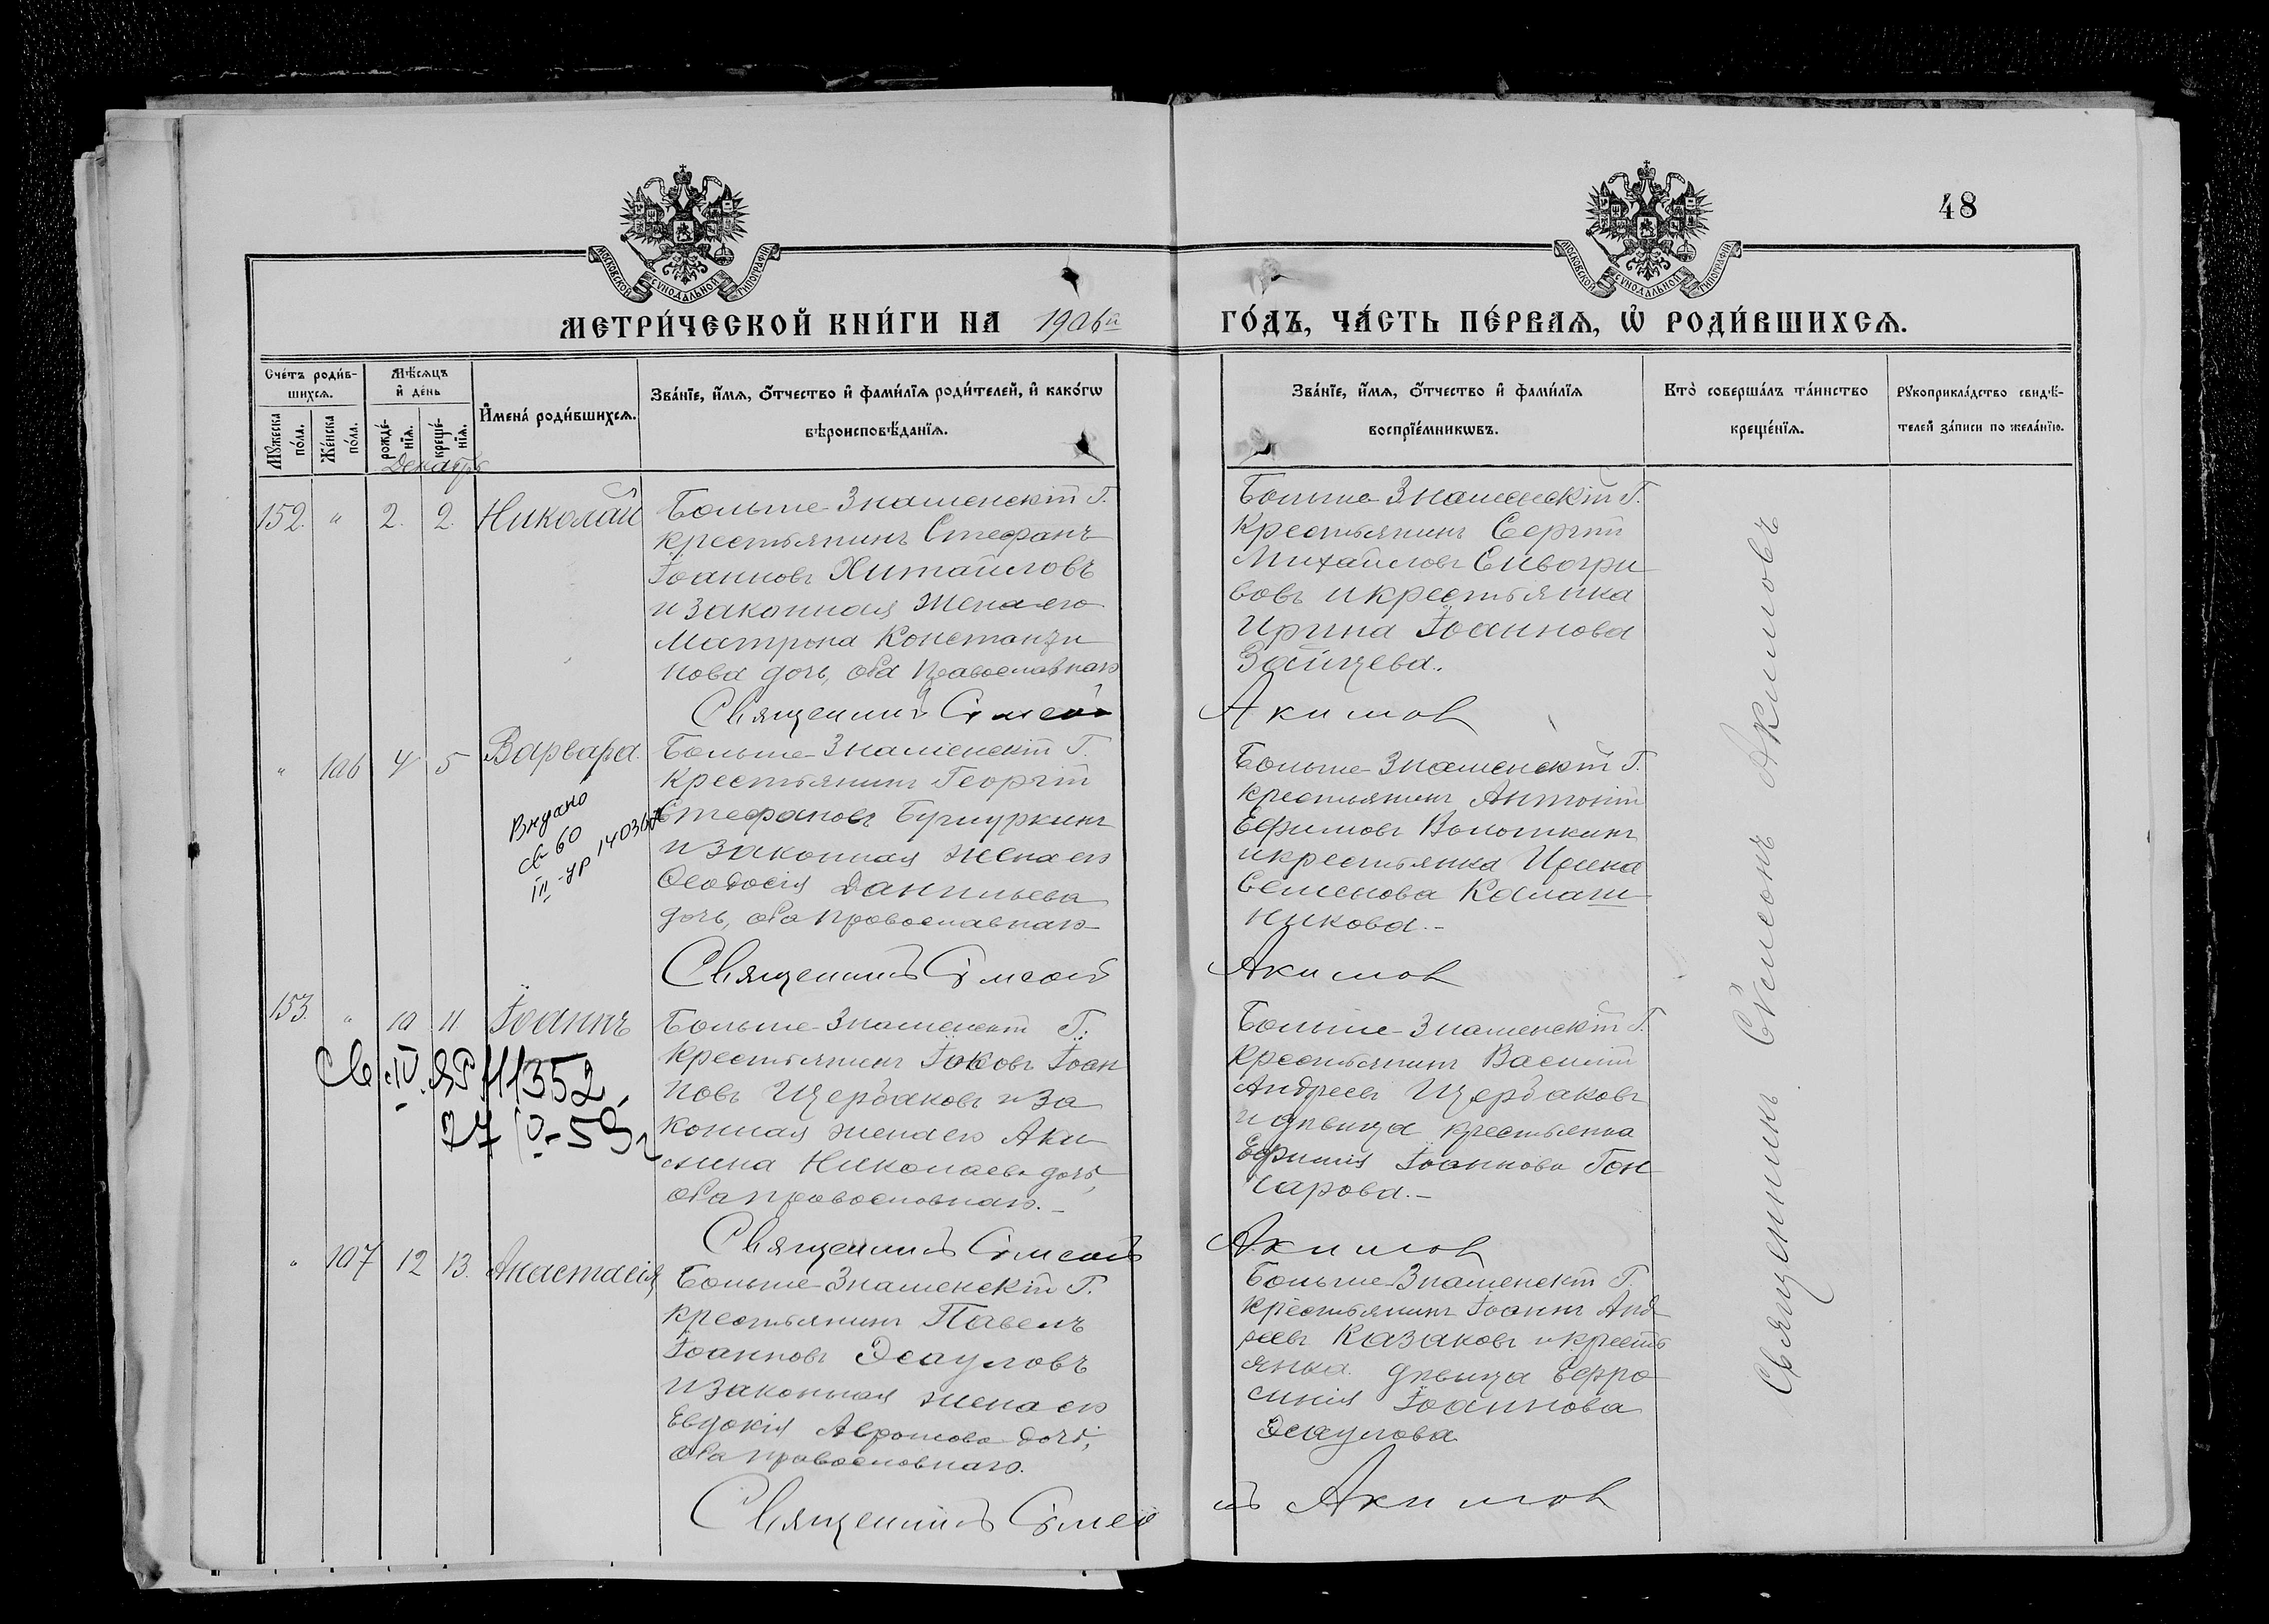 48
МОСКОВСКОЙ СѴНОДАЛЬНОЙ ТИПОГРАФІИ
МОСКОВСКОЙ СѴНОДАЛЬНОЙ ТИПОГРАФІИ
МЕТРИ́ЧЕСКОЙ КНИ́ГИ НА 1906й ГО́ДЪ, ЧА́СТЬ ПЕ́РВАѦ, Ѽ РОДИ́ВШИХСѦ.
Сче́тъ роди́в-
шихсѧ.
Мꙋ́жеска по́ла.
Же́нска по́ла.
Мѣ́сѧцъ
и҆ де́нь
рожде́-
нїѧ.
креще́-
нїѧ.
И҆мена̀ роди́вшихсѧ.
Зва́нїе, и҆́мѧ, ѻ҆́тчество и҆ фами́лїѧ роди́телей, и҆ како́гѡ
вѣроисповѣ́данїѧ.
Зва́нїе, и҆́мѧ, ѻ҆́тчество и҆ фами́лїѧ
воспрїе́мникѡвъ.
Кто̀ соверша́лъ та́инство
креще́нїѧ.
Рꙋкоприкла́дство свидѣ́-
телей за́писи по жела́нїю.
Декабрь
152. " 2. 2. Николай
Больше-Знаменскій Г.
крестьянинъ Стефанъ
Іоанновъ Хитайловъ
и законная жена его
Матрона Константи
нова дочь, оба Православнаго
Священникъ Симеонъ
Больше-Знаменскій Г.
крестьянинъ Сергій
Михайловъ Сивогри
вовъ и крестьянка
Ирина Іоаннова
Зайцева.
Акимов
" 106 4 5 Варвара.
Видано
св 60
III-яр 140366
Больше-Знаменскій Г.
крестьянинъ Георгій
Стефановъ
и законная жена его
Ѳеодосія Данильева
дочь, оба православнаго
Священникъ Симеонъ
Больше-Знаменскій Г.
крестьянинъ Антоній
Ефимовъ Волошкинъ
и крестьянка Ирина
Семенова Калаш-
никова.-
Акимов
153. " 10 11 Іоаннъ
Св. IV. ЯР 11352
27 IV-59
Больше-Знаменскій Г.
крестьянинъ Іаковъ Іоан
новъ Щербаковъ и за
конная жена его Аки-
лина Николаева дочь,
оба православнаго.-
Священникъ Симеонъ
Больше-Знаменскій Г.
крестьянинъ Василій
Андреевъ Щербаковъ
и дѣвица крестьянка
Ефимія Іоаннова Гон
чарова.-
Акимов
" 107 12 13. Анастасія
Больше-Знаменскій Г.
крестьянинъ Павелъ
Іоанновъ Эсауловъ
и законная жена его
Евдокія дочь,
оба православнаго.
Священникъ Симео
Больше-Знаменскій Г.
крестьянинъ Іоаннъ Анд
реевъ Казаковъ и кресть
янка дѣвица Евфро
синія Іоаннова
Эсаулова
нъ Акимов
Священникъ Симеонъ Акимовъ